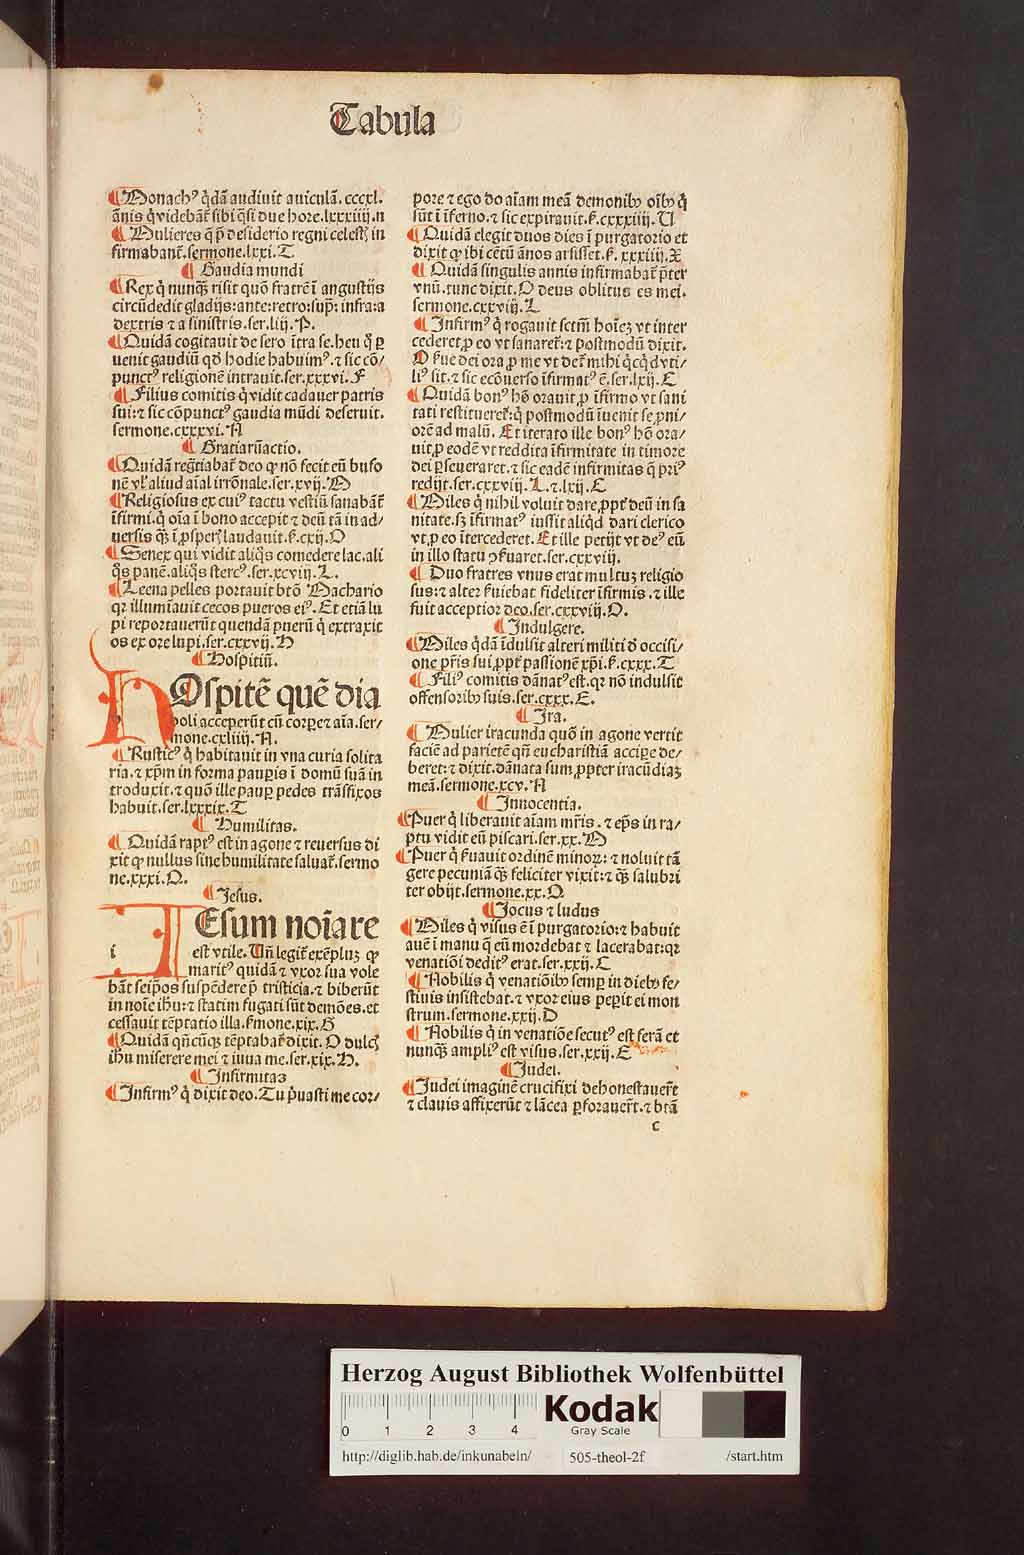 Tabula
¶ Monachꝰ q̇dā audiuit auiculā. cccxl.
ānis q̇ videbāt̄ sibi q̄si due hore. lxxxiiij. n
¶ Mulieres q̄ p̄ desiderio regni celestꝭ in
firmabant̄. sermone. lxxi. T
¶ Gaudia mundi
¶ Rex q̇ nunqꝫ risit quō fratrē ī angustijs
circūdedit gladijs: ante: retro: sup̄: infra: a
dextris ⁊ a sinistris. ser. liij. P.
¶ Quidā cogitauit de sero ītra se. heu q̇ ꝑ
uenit gaudiū qd̄ hodie habuimꝰ. ⁊ sic cō/
punctꝰ religionē intrauit. ser. xxxvi. F
¶ Filius comitis q̇ vidit cadauer patris
sui: ⁊ sic cōpunctꝰ gaudia mūdi deseruit.
sermone. cxxxvi. A
¶ Gratiarūactio.
¶ Quidā regr̄tiabat̄ deo ꝙ nō fecit eū bufo
nē vl̓ aliud aīal irrōnale. ser. xvij. M
¶ Religiosus ex cuiꝰ tactu vestiū sanabāt̄
īfirmi. q̇ oīa ī bono accepit ⁊ deū tā in ad/
uersis qꝫ ī ꝓsperꝭ laudauit. ẜ. cxij. O
¶ Senex qui vidit aliq̄s comedere lac. ali
q̄s panē. aliq̄s stercꝰ. ser. xcviij. L.
¶ Leena pelles portauit btō Machario
qꝛ illumīauit cecos pueros eiꝰ. Et etiā lu
pi reportauerūt quendā puerū q̇ extraxit
os ex ore lupi. ser. cxxvij. H
¶ Hospitiū.
Ospitē quē dia
h
boli acceperūt cū corꝑe ⁊ aīa. ser/
mone. cxliiij. A.
¶ Rusticꝰ q̇ habitauit in vna curia solita
ria. ⁊ xp̄m in forma pauꝑis ī domū suā in
troduxit. ⁊ quō ille pauꝑ pedes trāsfixos
habuit. ser. lxxxix. T
¶ Humilitas.
¶ Quidā raptꝰ est in agone ⁊ reuersus di
xit ꝙ nullus sine humilitate saluat̄. sermo
ne. xxxi. Q.
¶ Jesus.
Esum noīare
i
est vtile. Vn̄ legit̄ exēpluꝫ ꝙ
maritꝰ quidā ⁊ vxor sua vole
bāt seip̄os suspēdere p̄ tristicia. ⁊ biberūt
in noīe ih̄u: ⁊ statim fugati sūt demōes. et
cessauit tēptatio illa. ẜmone. xix. G
¶ Quidā qn̄cūqꝫ tēptabat̄ dixit. O dulcꝭ
ih̄u miserere mei ⁊ iuua me. ser. xix. H.
¶ Infirmitas
¶ Infirmꝰ q̇ dixit deo. Tu p̄uasti me cor/
pore ⁊ ego do aīam meā demonibꝰ oībꝰ q̇
sūt ī īferno. ⁊ sic expirauit. ẜ. cxxxiiij. U
¶ Quidā elegit duos dies ī purgatorio et
dixit ꝙ ibi cētū ānos arsisset. ẜ. xxxiiij. X
¶ Quidā singulis annis infirmabat̄ p̄ter
vnū. tunc dixit. O deus oblitus es mei.
sermone. cxxviij. L
¶ Infirmꝰ q̇ rogauit sctm̄ hoīeꝫ vt inter
cederet ꝓ eo vt sanaret̄: ⁊ postmodū dixit.
O ẜue dei ora ꝓ me vt det̄ mihi q̇cq̇d vti/
liꝰ sit. ⁊ sic ecōuerso īfirmatꝰ ē. ser. lxij. C
¶ Quidā bonꝰ hō orauit ꝓ īfirmo vt sani
tati restitueret̄: q̇ postmodū īuenit se ꝓni/
orē ad malū. Et iterato ille bonꝰ hō ora/
uit ꝓ eodē vt reddita īfirmitate in timore
dei ꝑseueraret. ⁊ sic eadē infirmitas q̄ priꝰ
redijt. ser. cxxviij. L. ⁊ lxij. C
¶ Miles q̇ nihil voluit dare ꝓpt̄ deū in sa
nitate. sꝫ īfirmatꝰ iussit aliq̇d dari clerico
vt ꝓ eo ītercederet. Et ille petijt vt deꝰ eū
in illo statu ꝯẜuaret. ser. cxxviij.
¶ Duo fratres vnus erat multuꝫ religio
sus: ⁊ alter ẜuiebat fideliter īfirmis. ⁊ ille
fuit acceptior deo. ser. cxxviij. O.
¶ Indulgere.
¶ Miles q̇dā īdulsit alteri militi d̄ occisi/
one pr̄is sui ꝓpt̄ passionē xp̄i. ẜ. cxxx. T
¶ Filiꝰ comitis dānatꝰ est. qꝛ nō indulsit
offensoribꝰ suis. ser. cxxx. E.
¶ Ira.
¶ Mulier iracunda quō in agone vertit
faciē ad parietē qn̄ eucharistiā acciꝑe de/
beret: ⁊ dixit. dānata sum ꝓpter iracūdiaꝫ
meā. sermone. xcv. A
¶ Innocentia.
¶ Puer q̇ liberauit aīam mr̄is. ⁊ ep̄s in ra/
ptu vidit eū piscari. ser. xx. M
¶ Puer q̇ ẜuauit ordinē minoꝝ: ⁊ noluit tā
gere pecuniā qꝫ feliciter vixit: ⁊ qꝫ salubri
ter obijt. sermone. xx. O
¶ Jocus ⁊ ludus
¶ Miles q̇ visus ē ī purgatorio: ⁊ habuit
auē ī manu q̄ eū mordebat ⁊ lacerabat: qꝛ
venatiōi deditꝰ erat. ser. xxij. C
¶ Nobilis q̇ venatiōibꝰ semꝑ in diebꝰ fe/
stiuis insistebat. ⁊ vxor eius peꝑit ei mon
strum. sermone. xxij. D
¶ Nobilis q̇ in venatiōe secutꝰ est ferā et
nunqꝫ ampliꝰ est visus. ser. xxij. E
¶ Judei.
¶ Judei imaginē crucifixi dehonestauer̄t
⁊ clauis affixerūt ⁊ lācea ꝑforauer̄t. ⁊ btā
c
Herzog August Bibliothek Wolfenbüttel
0 1 2 3 4
Kodak
Gray Scale
http://diglib.hab.de/inkunabeln/ 505-theol-2f /start.htm